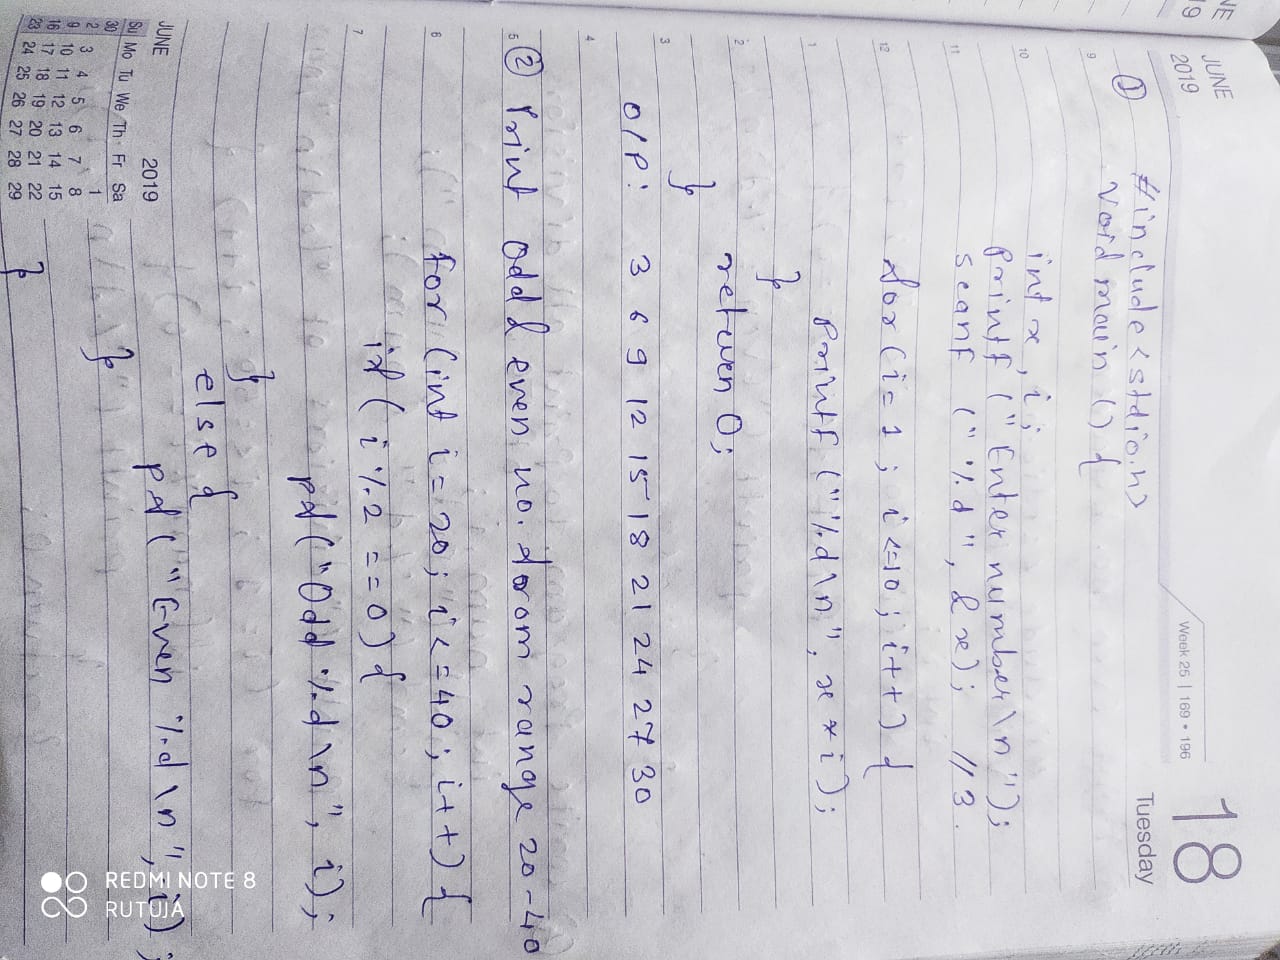 JUNE
19
JUNE
2019
Week 25 | 169 • 196
18
Tuesday
① #include<stdio.h>
void main () {
int x, i;
printf ("Enter number\n");
scanf ("%d", &x); // 3.
for (i=1; i<=10; i++) {
printf ("%d\n", x*i);
}
return 0;
}
O/P: 3 6 9 12 15 18 21 24 27 30
② Print odd & even no. from range 20-40
for (int i=20; i<=40; i++) {
if (i%2 ==0) {
pf ("Odd %d\n", i);
}
else {
pf ("Even %d\n", i);
}
}
9
10
11
12
1
2
3
4
5
6
7
JUNE 2019
Su Mo Tu We Th Fr Sa
30 1
2 3 4 5 6 7 8
9 10 11 12 13 14 15
16 17 18 19 20 21 22
23 24 25 26 27 28 29
REDMI NOTE 8
RUTUJA